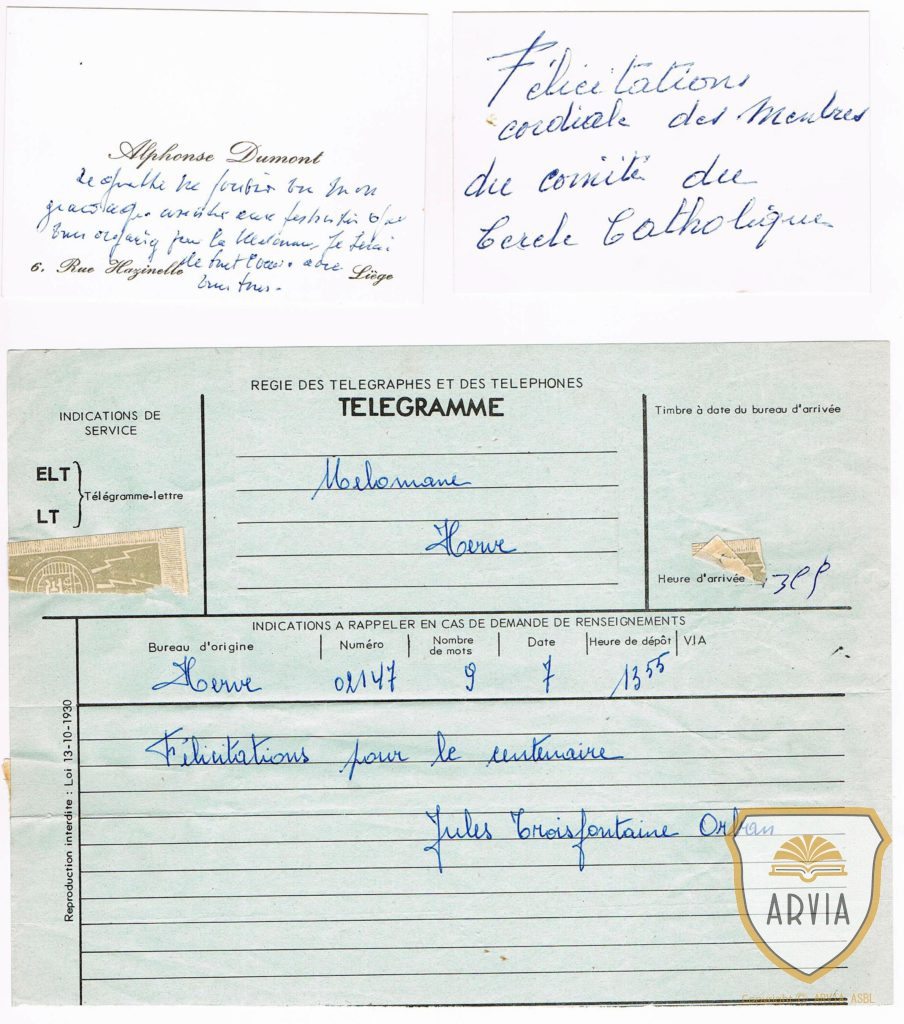 Alphonse Dumont
mon
aux
vous la
6. Rue Hazinelle avec Liège
vous tous.
Félicitations
cordiale des Membres
du comité du
Cercle Catholique
REGIE DES TELEGRAPHES ET DES TELEPHONES
TELEGRAMME
INDICATIONS DE
SERVICE
ELT
Télégramme-lettre
LT
Melomane
Herve
Timbre à date du bureau d'arrivée
Heure d'arrivée
INDICATIONS A RAPPELER EN CAS DE DEMANDE DE RENSEIGNEMENTS
Bureau d'origine Numéro Nombre de mots Date Heure de dépôt VIA
Herve 02147 9 7 13 55
Félicitations pour le centenaire
Jules Troisfontaine Orban
Reproduction interdite : Loi 13-10-1930
ARVIA
Copyright © ARVIA ASBL